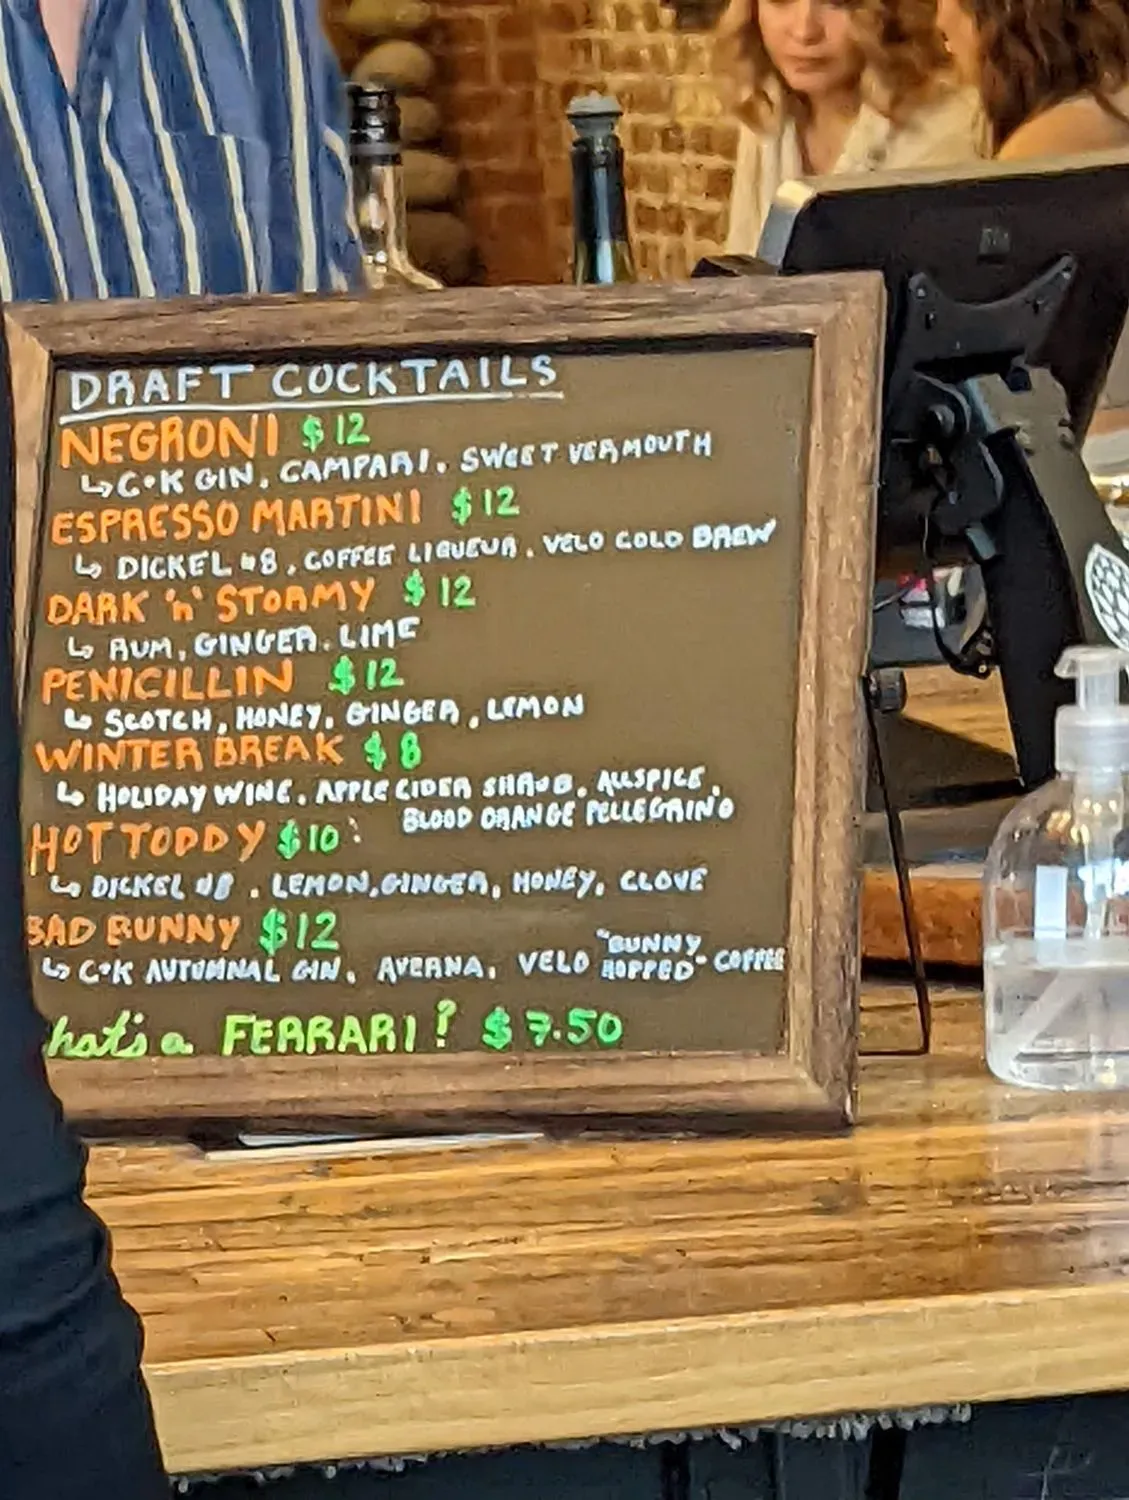 DRAFT COCKTAILS
NEGRONI $12
↳ C+K GIN, CAMPARI, SWEET VERMOUTH
ESPRESSO MARTINI $12
↳ DICKEL #8, COFFEE LIQUEUR, VELO COLD BREW
DARK 'n' STORMY $12
↳ RUM, GINGER, LIME
PENICILLIN $12
↳ SCOTCH, HONEY, GINGER, LEMON
WINTER BREAK $8
↳ HOLIDAY WINE, APPLE CIDER SHRUB, ALLSPICE,
BLOOD ORANGE PELLEGRINO
HOT TODDY $10
↳ DICKEL #8, LEMON, GINGER, HONEY, CLOVE
BAD BUNNY $12
↳ C+K AUTUMNAL GIN, AVERNA, VELO "BUNNY HOPPED" COFFEE
hat's a FERRARI? $7.50